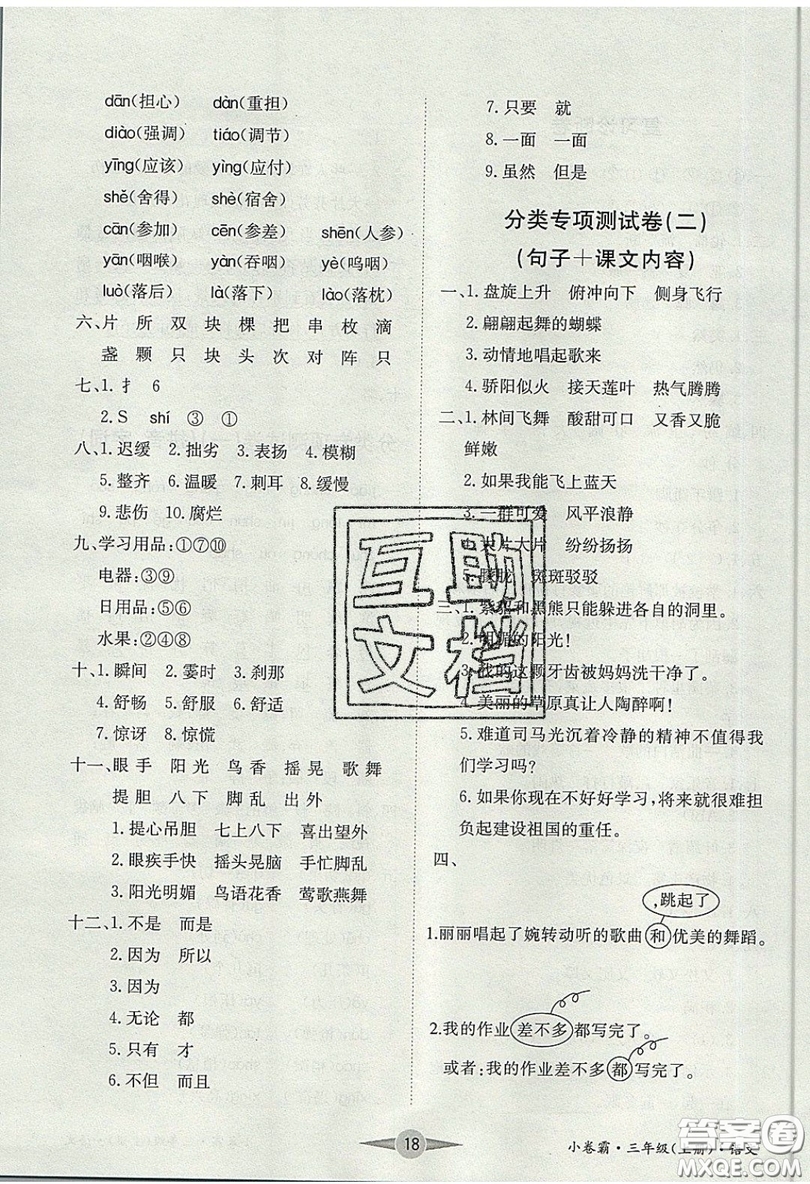 dān(担心) dàn(重担)
diào(强调) tiáo(调节)
yīng(应该) yìng(应付)
shě(舍得) shè(宿舍)
cān(参加) cēn(参差) shēn(人参)
yān(咽喉) yàn(吞咽) yè(呜咽)
luò(落后) là(落下) lào(落枕)
六、片 所 双 块 棵 把 串 枚 滴
盏 颗 只 块 头 次 对 阵 只
七、1.扌 6
2.S shí ③ ①
八、1.迟缓 2.拙劣 3.表扬 4.模糊
5.整齐 6.温暖 7.刺耳 8.缓慢
9.悲伤 10.腐烂
九、学习用品:①⑦⑩
电器:③⑨
日用品:⑤⑥
水果:②④⑧
十、1.瞬间 2.霎时 3.刹那
4.舒畅 5.舒服 6.舒适
7.惊讶 8.惊慌
十一、眼 手 阳光 鸟香 摇晃 歌舞
提胆 八下 脚乱 出外
1.提心吊胆 七上八下 喜出望外
2.眼疾手快 摇头晃脑 手忙脚乱
3.阳光明媚 鸟语花香 莺歌燕舞
十二、1.不是 而是
2.因为 所以
3.因为
4.无论 都
5.只有 才
6.不但 而且
7.只要 就
8.一面 一面
9.虽然 但是
分类专项测试卷(二)
(句子+课文内容)
一、1.盘旋上升 俯冲向下 侧身飞行
2.翩翩起舞的蝴蝶
3.动情地唱起歌来
4.骄阳似火 接天莲叶 热气腾腾
二、1.林间飞舞 酸甜可口 又香又脆
鲜嫩
2.如果我能飞上蓝天
3.一群可爱 风平浪静
4.大片大片 纷纷扬扬
5.朦胧 斑斑驳驳
三、1.紫貂和黑熊只能躲进各自的洞里。
2.明媚的阳光!
3.我的这颗牙齿被妈妈洗干净了。
4.美丽的草原真让人陶醉啊!
5.难道司马光沉着冷静的精神不值得我
们学习吗?
6.如果你现在不好好学习,将来就很难担
负起建设祖国的重任。
四、
,跳起了
1.丽丽唱起了婉转动听的歌曲和优美的舞蹈。
2.我的作业差不多都写完了。
或者:我的作业差不多都写完了。
互助
文档
18
小卷霸·三年级(上册)·语文
答案圈
MXQE.COM